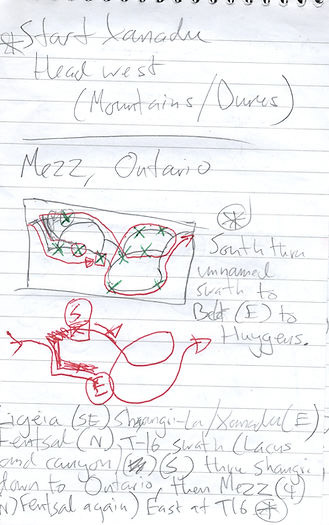 Start Xanadu
Head west
(Mountains/Dunes)
Mezz, Ontario
South thru
unnamed
swath to
Belet (E) to
Huygens.
S
E
Ligeia (SE) Shangri-La/Xanadu (E)
Fentsal (N) T-16 swath (Lacus
and canyon) (S) thru Shangri,
down to Ontario, then Mezz (4)
N) Fentsal again) East at T16